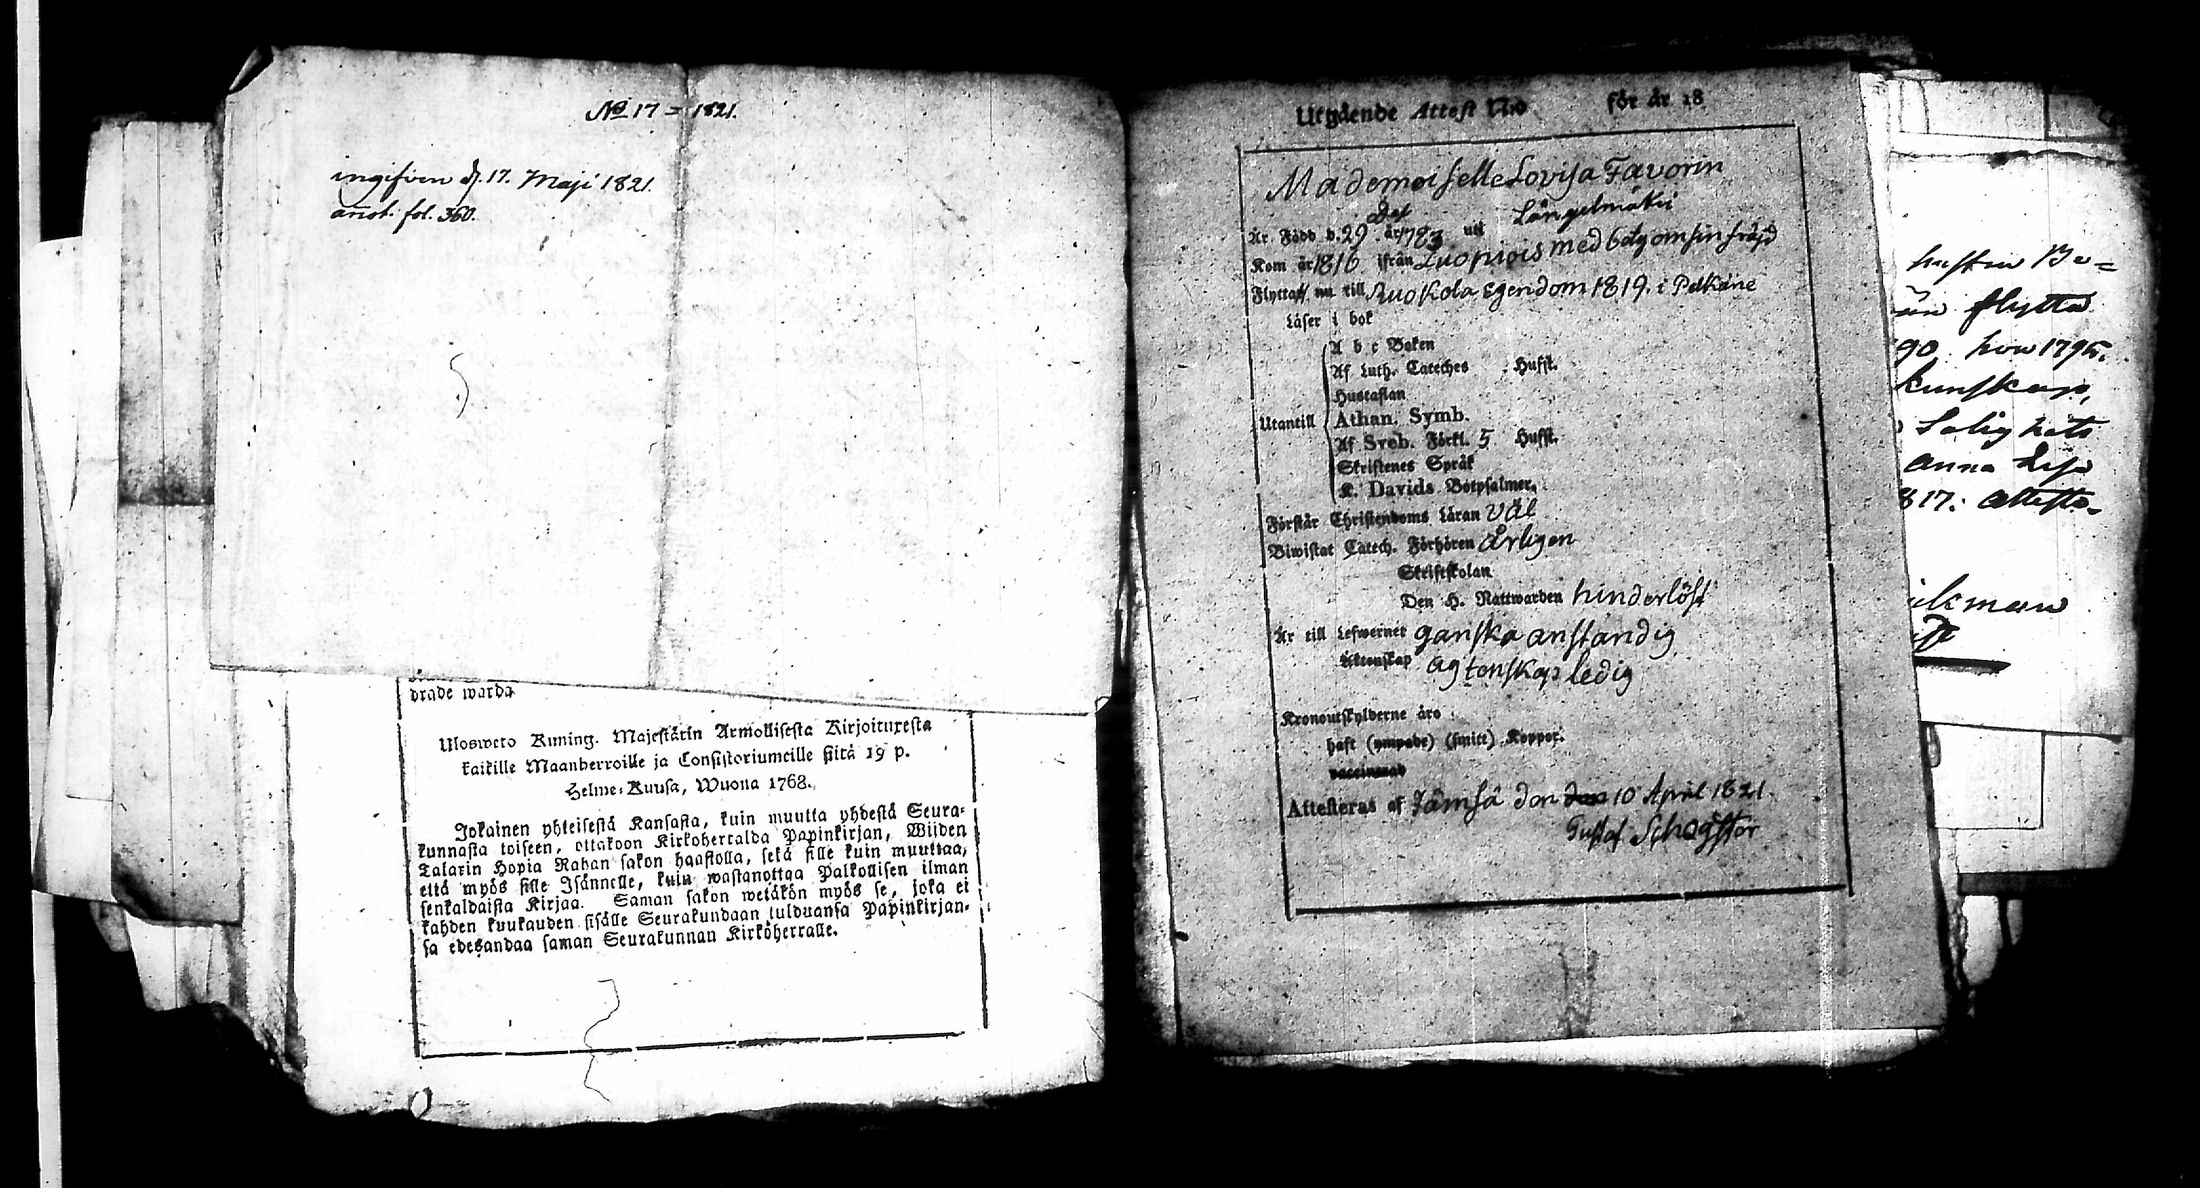 No 17 = 1821.
ingifven d. 17. Maji 1821.
anot. fol. 360.
drade warda
Ulosweto Kuning. Majestätin Armollisesta Kirjoituxesta
kaikille Maanherroille ja Consistoriumeille siitä 19 p.
Helme-Kuusa, Wuona 1768.
Jokainen yhteisestä Kansasta, kuin muutta yhdestä Seura-
kunnasta toiseen, ottakoon Kirkoherralda Papinkirjan, Wijden
Talarin Hopia Rahan sakon haastolla, sekä sille kuin muuttaa,
että myös sille Isännelle, kuin wastanottaa Palkollisen ilman
senkaldaista Kirjaa. Saman sakon wetäkön myös se, joka ei
kahden kuukauden sisälle Seurakundaan tulduansa Papinkirjan-
sa edesandaa saman Seurakunnan Kirkoherralle.
Utgående Attest N:o för år 18
Mademoiselle Lovisa Favorin
Är Född d. 29 Det år 1783 uti Längelmäki
Kom år 1816 ifrån Luopiois med betyg om sin fräjd
Flyttar nu till Ruokola Egendom 1819. i Pelkäne
Läser i bok
A b c Boken
Af Luth. Cateches Hufst.
Hustaflan
Utantill Athan. Symb.
Af Sveb. Förkl. 5 Hufst.
Skriftenes Språk
K. Davids Botpsalmer.
Förstår Christendoms Läran väl
Biwistat Catech. Förhören Årligen
Skriftskolan
Den H. Nattwarden hinderlöst
Är till Lefwernet ganska anständig
Äktenskap agtenskap ledig
Kronoutskylderne äro
haft (ympade) (smitt) Koppor.
vaccinerad
Attesteras af Jämsä den den 10 April 1821.
Gustaf
husfru Be=
flytta
90 hon 1795.
kunskap,
Salighets
anna Lisa
817. atteste-